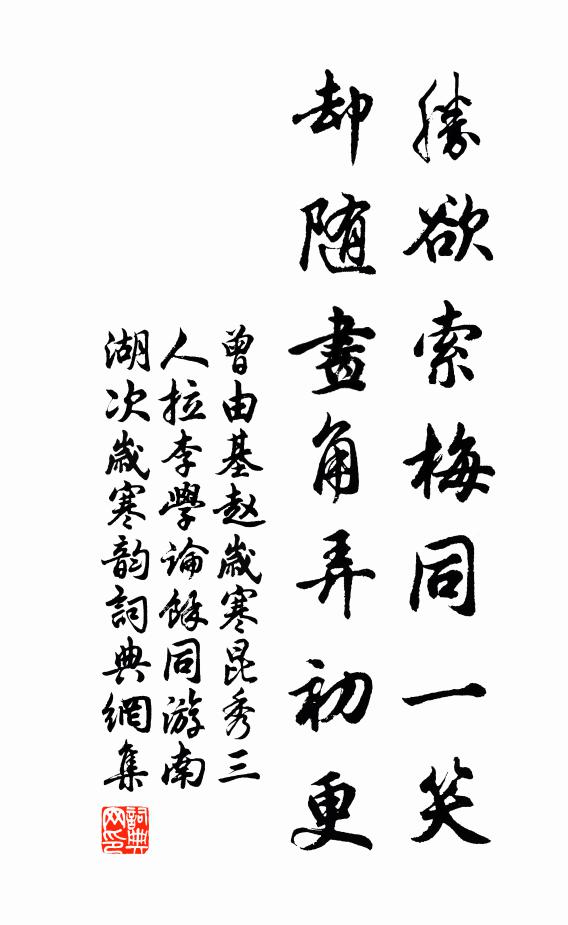 勝欲索梅同一笑
却随畫角弄初更
曾由基赵歲寒昆秀三
人拉李學論餘同游南
湖次歲寒韵詞典網集
詞典
网印